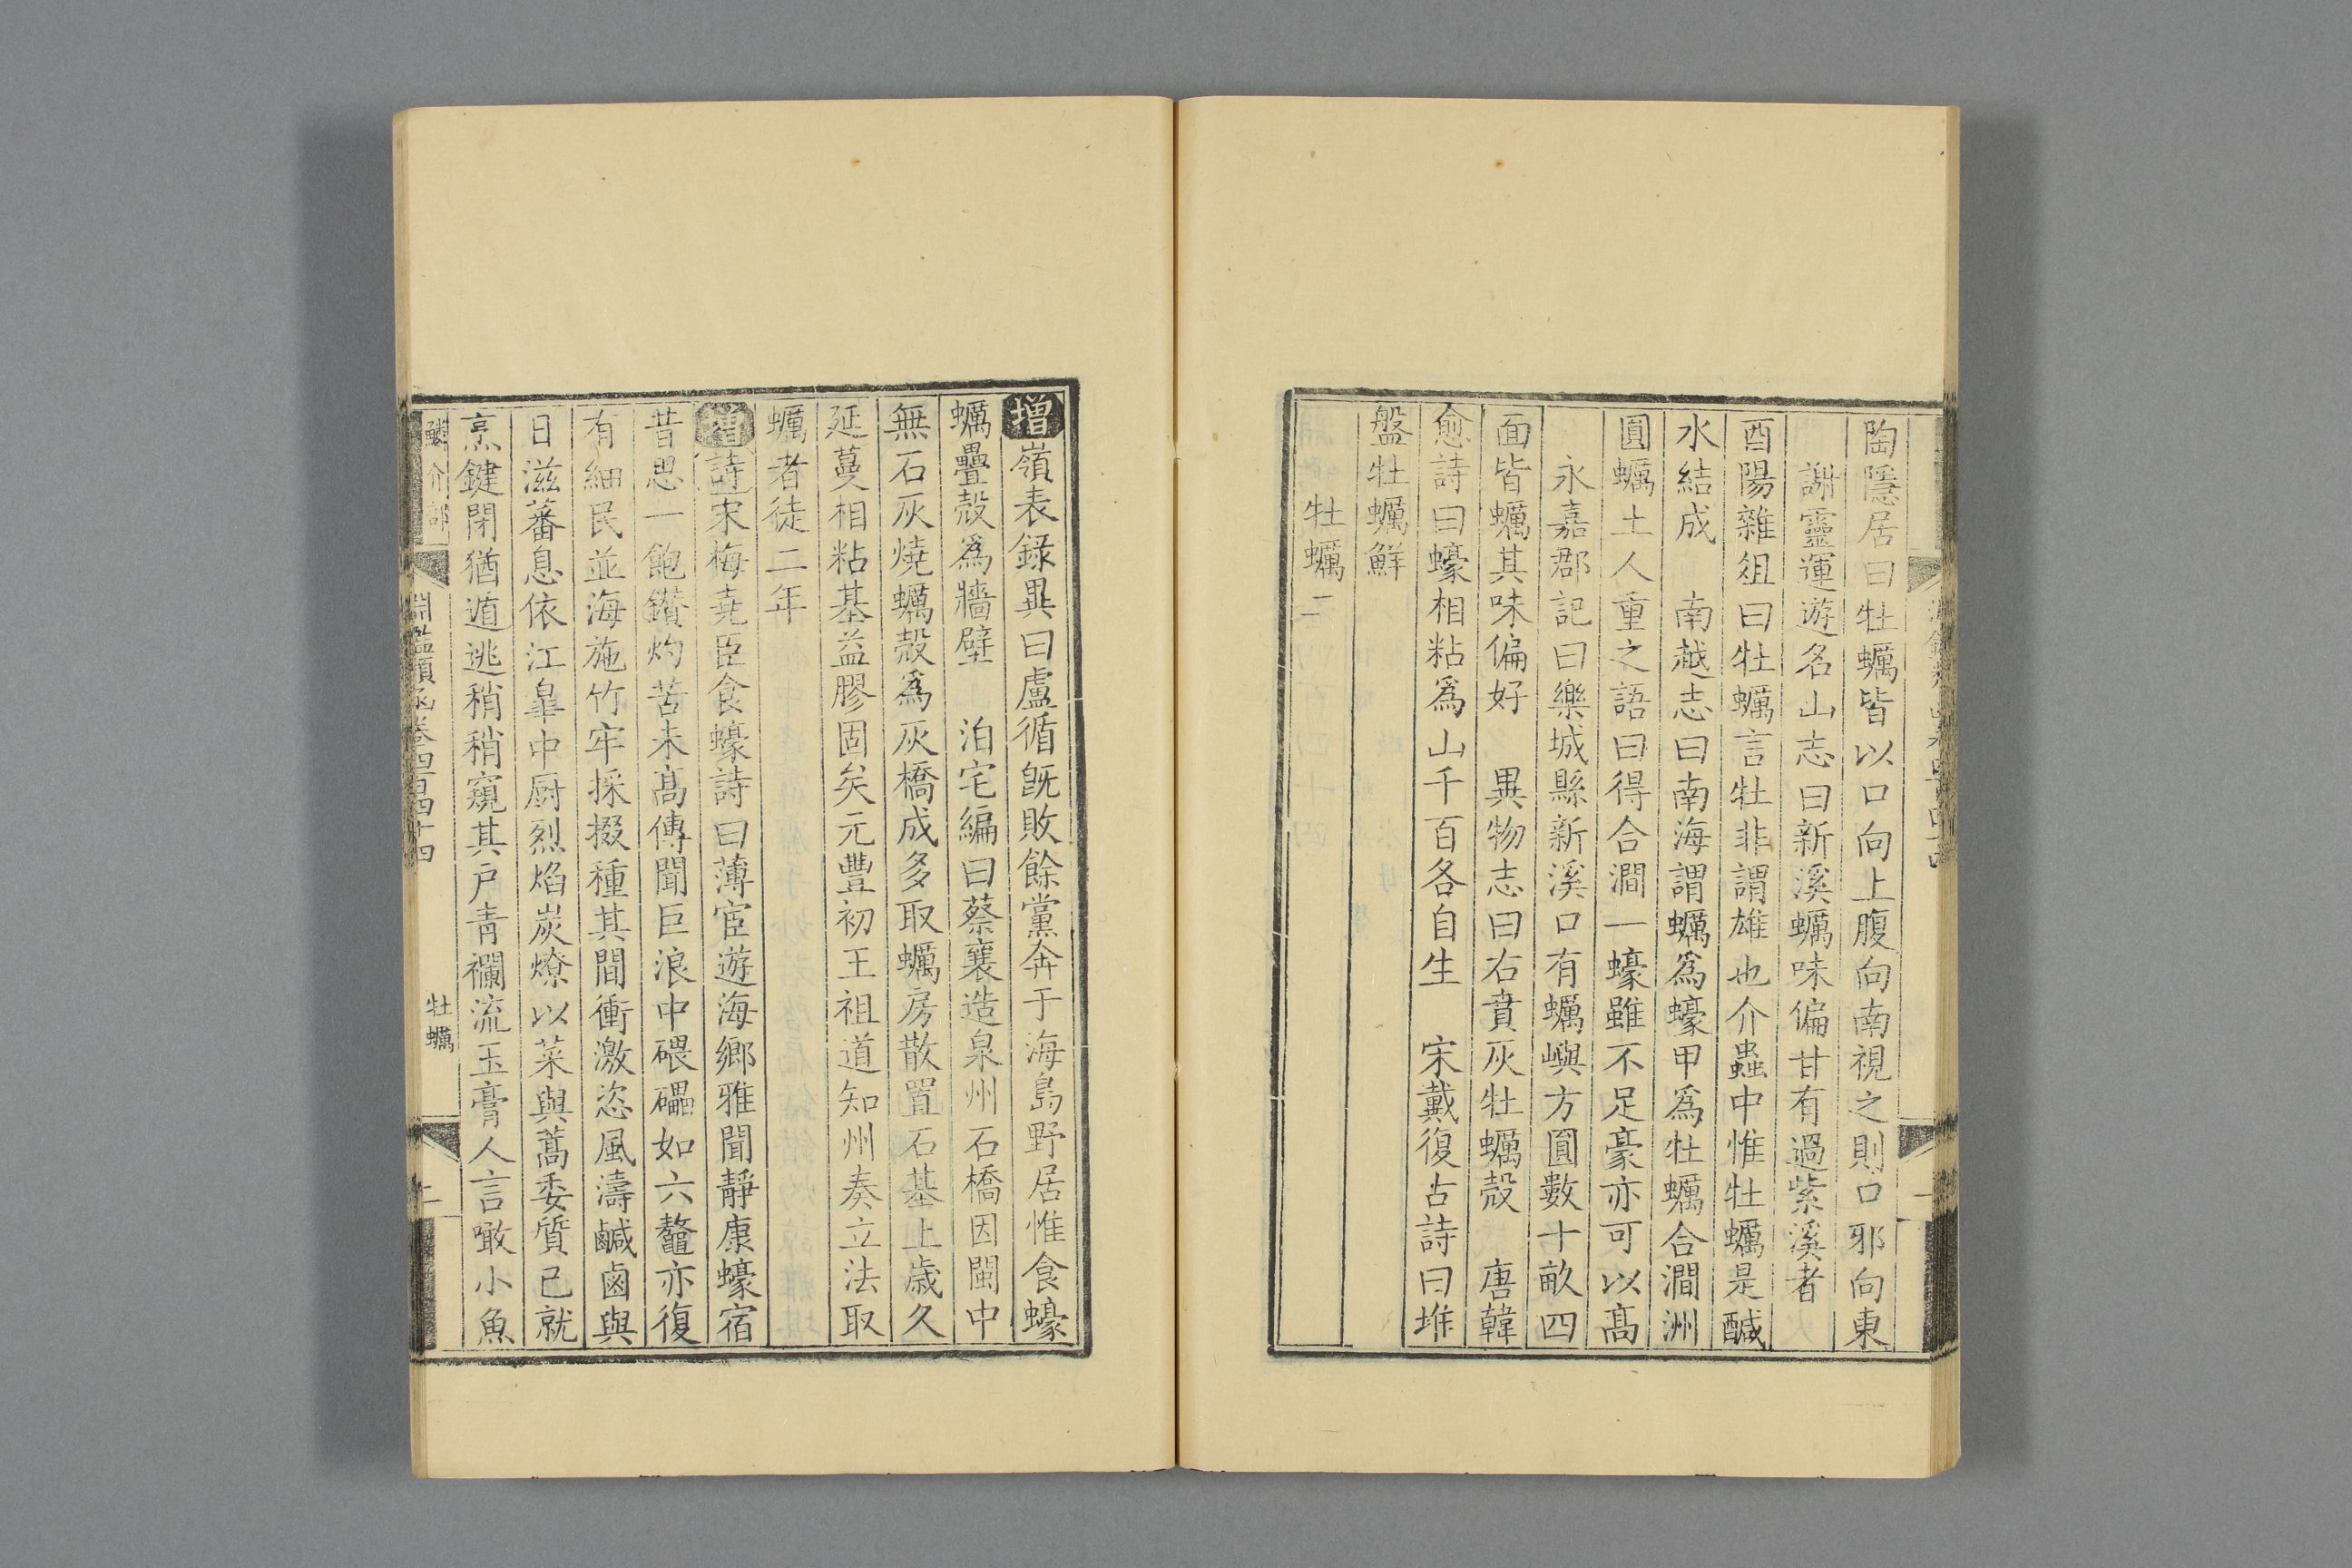 陶隱居曰牡蠣皆以口向上腹向南視之則口邪向東
謝靈運遊名山志曰新溪蠣味偏甘有過紫溪者
酉陽雜俎曰牡蠣言牡非謂雄也介蟲中惟牡蠣是醎
水結成　南越志曰南海謂蠣爲蠔甲爲牡蠣合澗洲
圓蠣土人重之語曰得合澗一蠔雖不足豪亦可以高
永嘉郡記曰樂城縣新溪口有蠣嶼方圓數十畝四
面皆蠣其味偏好　異物志曰右賁灰牡蠣殼　唐韓
愈詩曰蠔相粘爲山千百各自生　宋戴復古詩曰堆
盤牡蠣鮮
牡蠣二
增嶺表錄異曰盧循旣敗餘黨奔于海島野居惟食蠔
蠣疊殼爲牆壁　泊宅編曰蔡襄造泉州石橋因閩中
無石灰燒蠣殼爲灰橋成多取蠣房散置石基上歲久
延蔓相粘基益膠固矣元豐初王祖道知州奏立法取
蠣者徒二年
增詩宋梅堯臣食蠔詩曰薄宦遊海鄉雅聞靜康蠔宿
昔思一飽鑽灼苦未高傳聞巨浪中碨礧如六鼇亦復
有細民並海施竹牢採掇種其間衝激恣風濤鹹鹵與
日滋蕃息依江皐中厨烈焰炭燎以菜與蒿委質已就
烹鍵閉猶遁逃稍稍窺其戸青襴流玉膏人言噉小魚
鱗介部
淵鑑類函卷四百四十四
牡蠣
二